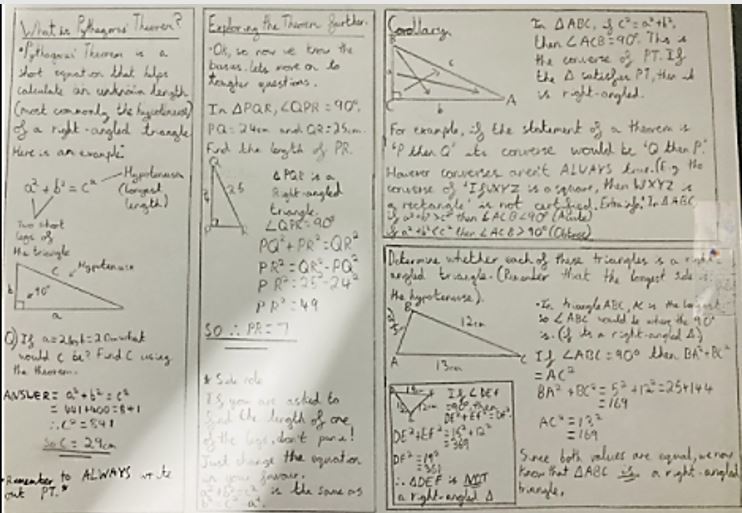 What is Pythagoras' Theorem?
• Pythagoras' Theorem is a
short equation that helps
calculate an unknown length
(most commonly the hypotenuse)
of a right-angled triangle
Here is an example:
a² + b² = c²
Hypotenuse
(longest
length)
Two short
legs of
the triangle
c Hypotenuse
b 90°
a
Q) If a = 21 b = 20 what
would c be? Find C using
the theorem.
ANSWER = a² + b² = c²
= 441 + 400 = 841
∴ c² = 841
So C = 29cm
• Remember to ALWAYS write
out PT.*
Exploring the Theorem further.
• Ok, so now we know the
basics. lets move on to
tougher questions.
In △PQR, ∠QPR = 90°.
PQ = 24cm and QR = 25cm.
Find the length of PR.
Q
25
△PQR is a
Right-angled
triangle.
∠QPR = 90°
PQ² + PR² = QR²
PR² = QR² - PQ²
PR² = 25² - 24²
PR² = 49
SO ∴ PR = 7
* Side note
If you are asked to
find the length of one
of the legs, don't panic!
Just change the equation
in your favour.
a² + b² = c² is the same as
b² = c² - a².
Corollary
B
c
C b A
In △ABC, if c² = a² + b²,
then ∠ACB = 90°. This is
the converse of PT. If
the △ satisfies PT, then it
is right-angled.
For example, if the statement of a theorem is
'P then Q' its converse would be 'Q then P.'
However converses aren't ALWAYS true. (E.g the
converse of 'If WXYZ is a square, then WXYZ is
a rectangle' is not certified. Extra info: In △ABC
if a² + b² > c² then ∠ACB < 90° (Acute)
if a² + b² < c² then ∠ACB > 90° (Obtuse)
Determine whether each of these triangles is a right
angled triangle. (Remember that the longest side is
the hypotenuse).
B
12cm
A 13cm C
• In triangle ABC, AC is the longest
so ∠ABC would be where the 90°
is. (if its a right-angled △)
If ∠ABC = 90° then BA² + BC²
= AC²
BA² + BC² = 5² + 12² = 25 + 144
= 169
AC² = 13²
= 169
Since both values are equal, we now
know that △ABC is a right-angled
triangle.
If ∠DEF
= 90°, then
DE² + EF² = DF²
DE² + EF² = 15² + 12²
= 369
DF² = 19²
= 361
∴ △DEF is NOT
a right-angled △